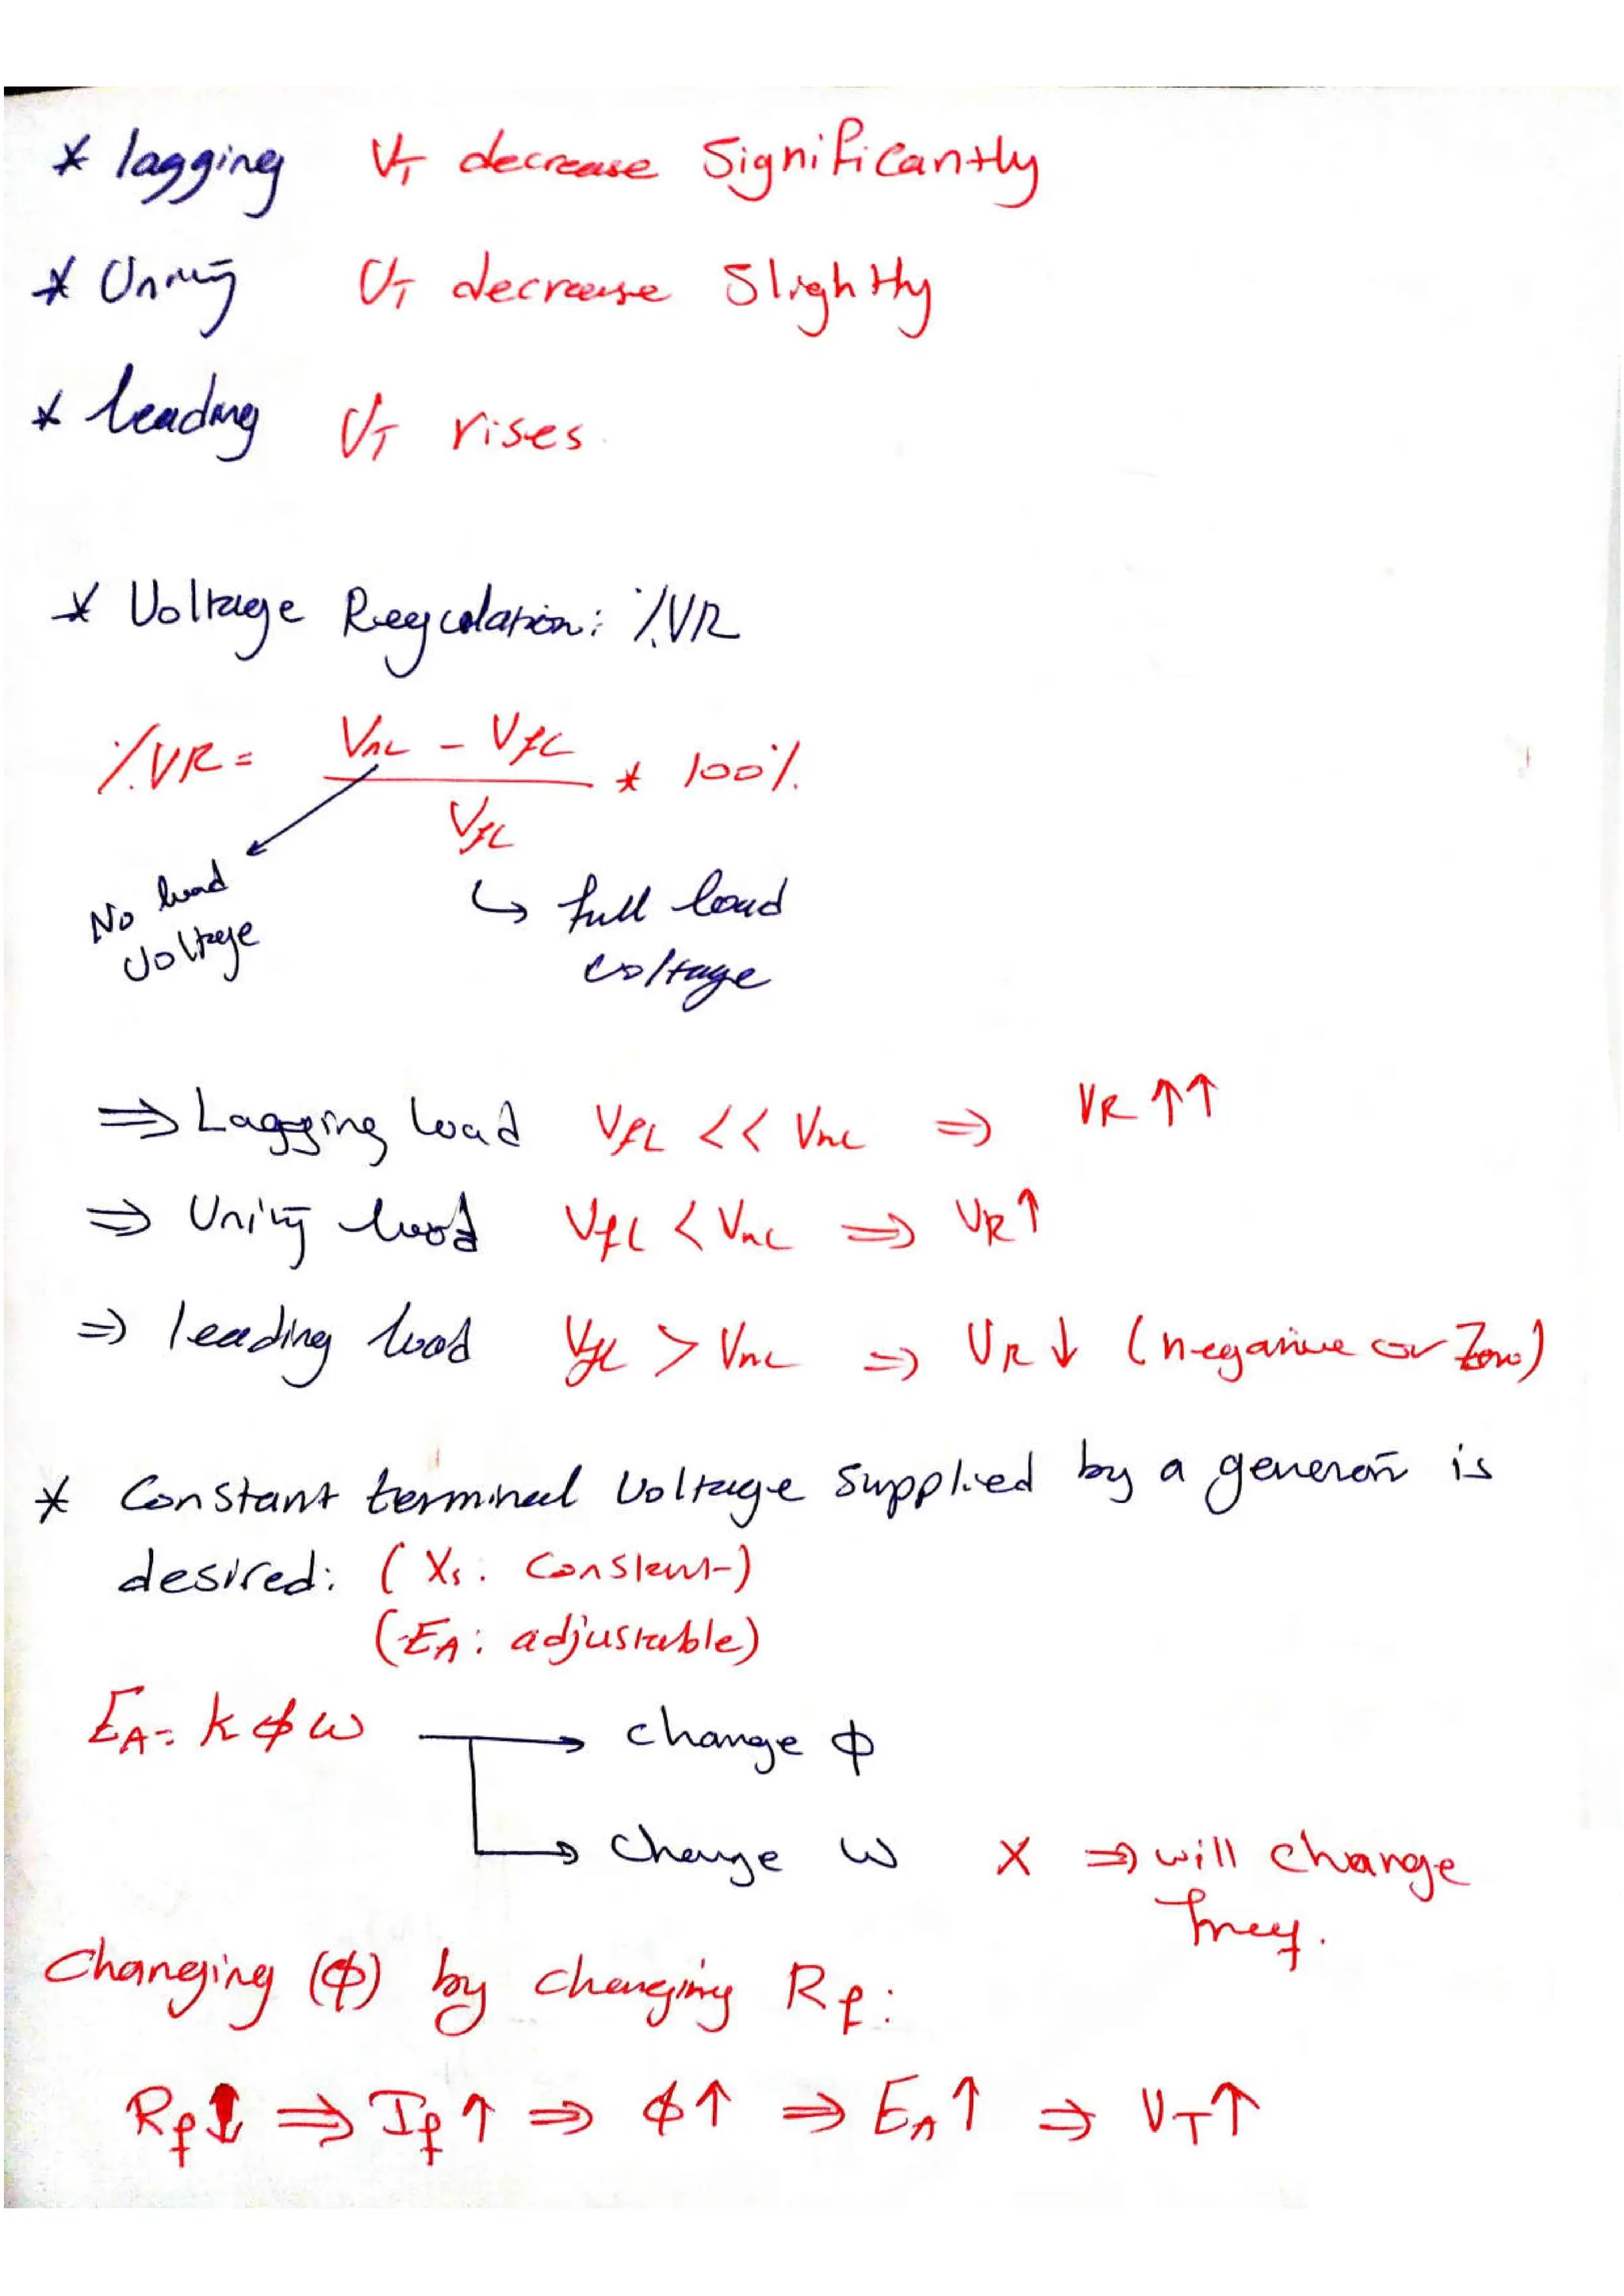 * lagging V_T decrease Significantly
* Unity V_T decrease Slightly
* leading V_T rises
* Voltage Regulation: %VR
%VR = (V_nL - V_fL) / V_fL * 100%
No load voltage
↳ full load voltage
⇒ Lagging load V_fL << V_nL ⇒ VR ↑↑
⇒ Unity load V_fL < V_nL ⇒ VR ↑
⇒ leading load V_fL > V_nL ⇒ VR ↓ (negative or Zero)
* Constant terminal Voltage supplied by a generator is
desired: (X_s: Constant)
(E_A: adjustable)
E_A = k ϕ ω → change ϕ
→ change ω X ⇒ will change
freq.
Changing (ϕ) by changing R_f:
R_f ↓ ⇒ I_f ↑ ⇒ ϕ ↑ ⇒ E_A ↑ ⇒ V_T ↑